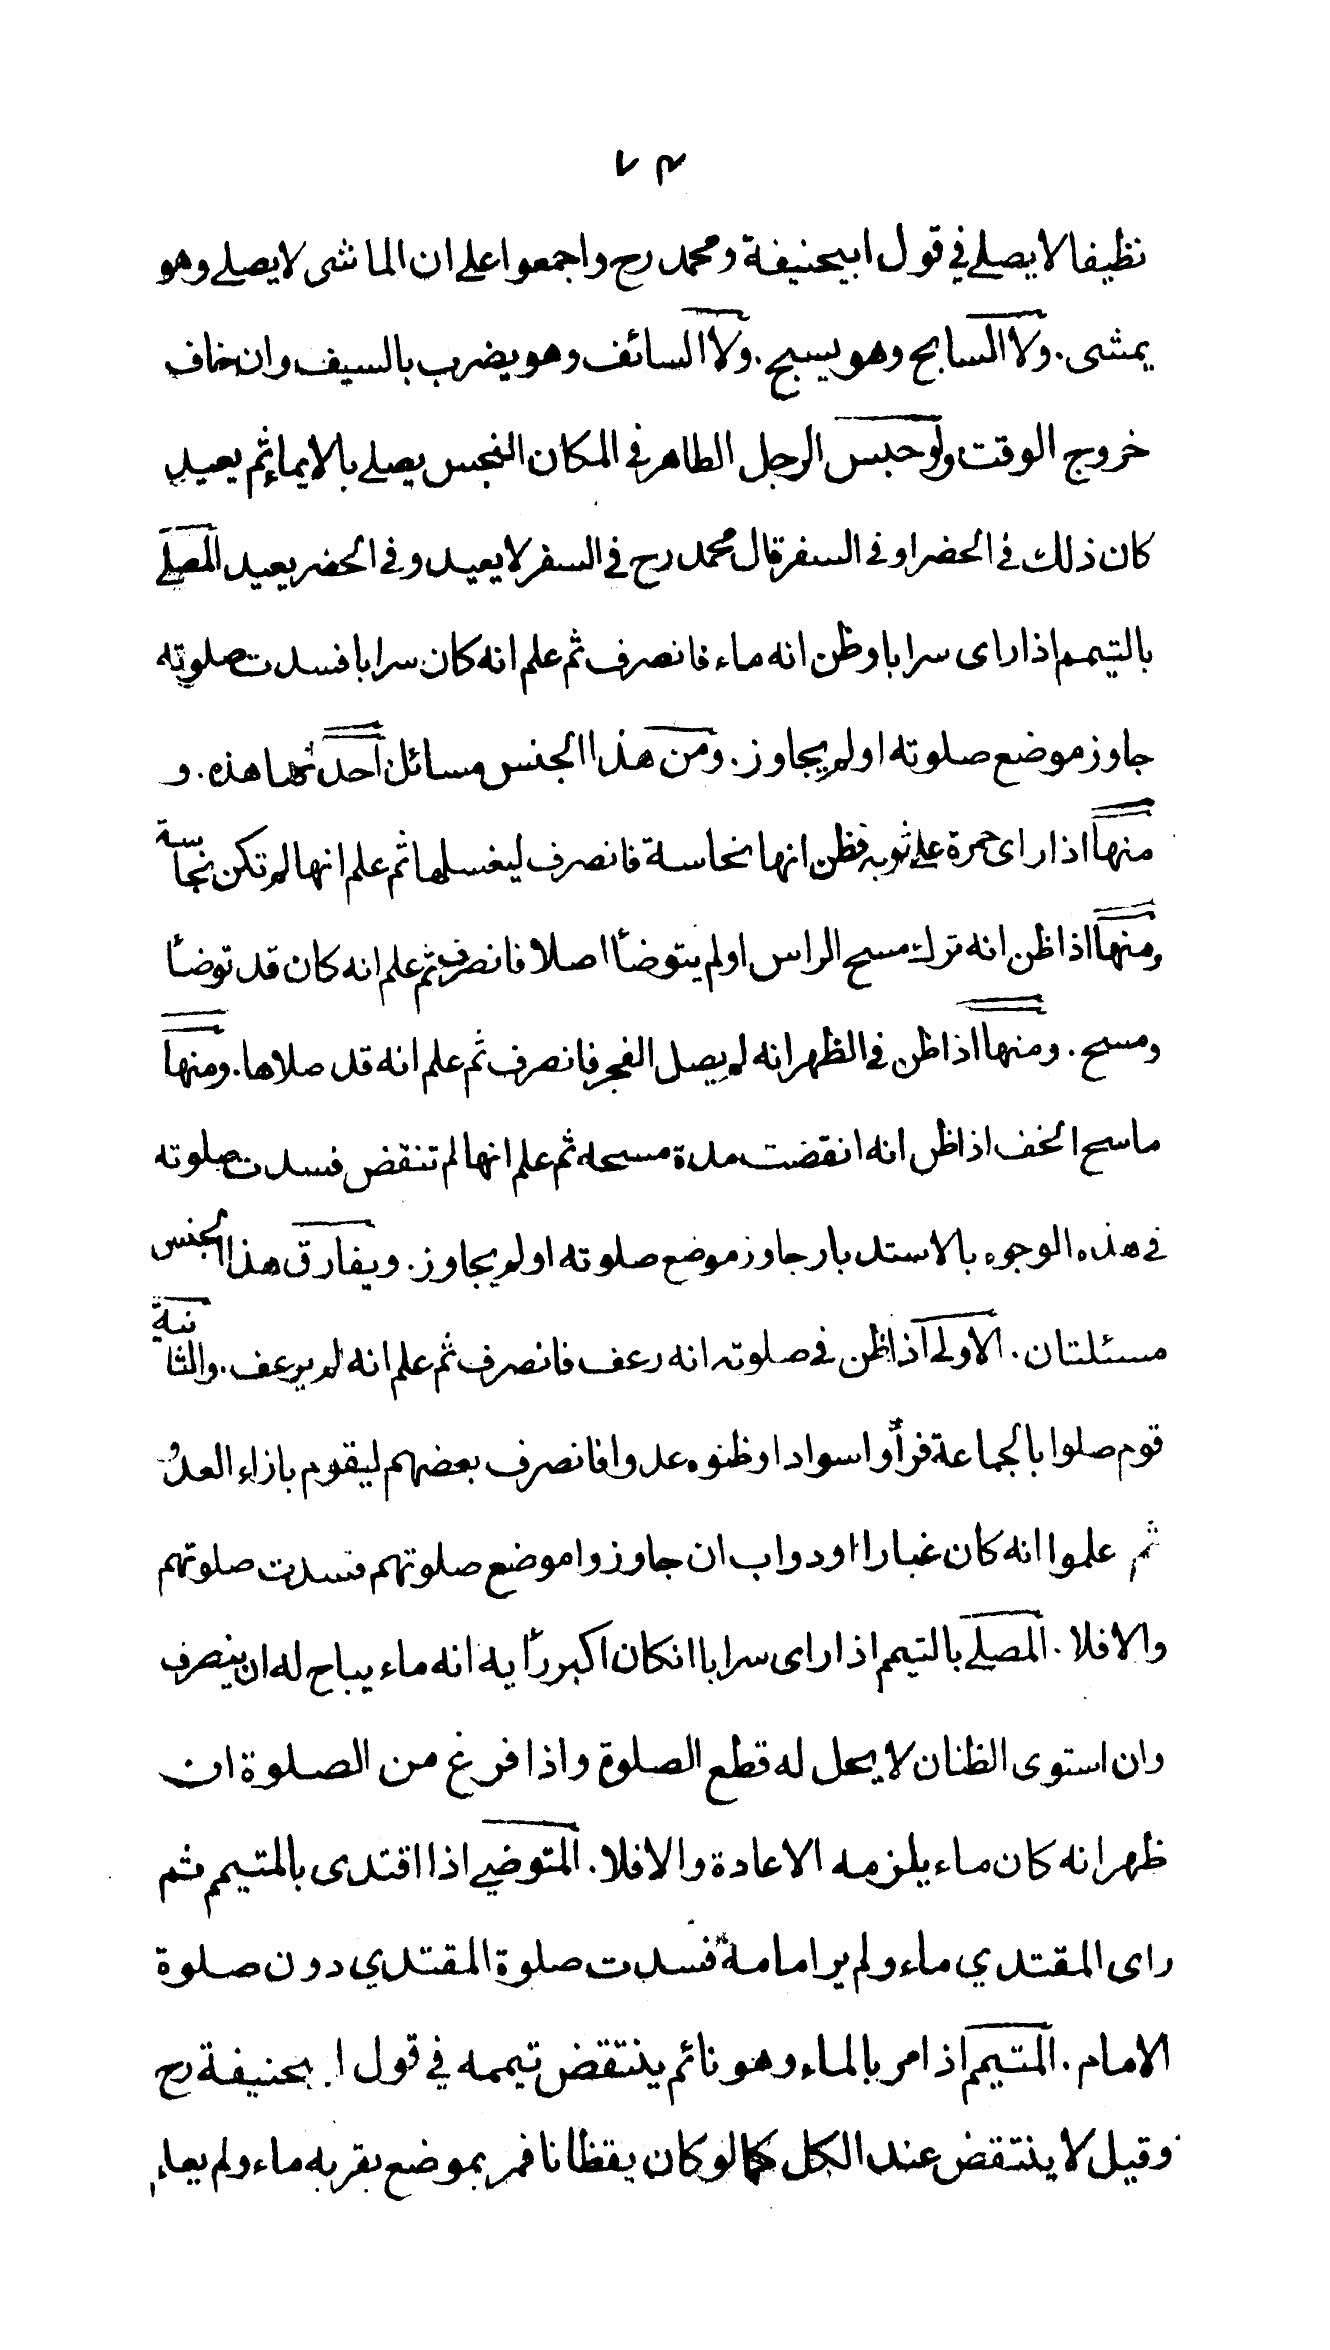 ٧٤
نظيفا لا يصلے في قول ابيحنيفة ومحمد رح واجمعوا علے ان الماشى لا يصلے وهو
يمشى . ولا السابح وهو يسبح . ولا السائف وهو يضرب بالسيف وان خاف
خروج الوقت ولو حبس الرجل الطاهر في المكان النجس يصلے بالايماء ثم يعيد
كان ذلك في الحضر او في السفر قال محمد رح في السفر لا يعيد وفي الحضر يعيد المصلے
بالتيمم اذا راى سرابا وظن انه ماء فانصرف ثم علم انه كان سرابا فسدت صلوته
جاوز موضع صلوته او لم يجاوز . ومن هذا الجنس مسائل احدٰىها هذه . و
منها اذا راى حمرة علے ثوبه فظن انها نحاسة فانصرف ليغسلها ثم علم انها لم تكن نجاسة
ومنها اذا ظن انه ترك مسح الراس او لم يتوضأ اصلا فانصرف ثم علم انه كان قد توضأ
ومسح . ومنها اذا ظن في الظهر انه لم يصل الفجر فانصرف ثم علم انه قد صلاها . ومنها
ماسح الخف اذا ظن انه انقضت مدة مسحه ثم علم انها لم تنقض فسدت صلوته
في هذه الوجوه بالاستدبار جاوز موضع صلوته او لم يجاوز . ويفارق هذا الجنس
مسئلتان . الاولى اذا ظن في صلوته انه رعف فانصرف ثم علم انه لم يرعف . والثانية
قوم صلوا بالجماعة فرأوا سوادا وظنوه عدوا فانصرف بعضهم ليقوم بازاء العدو
ثم علموا انه كان غبارا او دواب ان جاوزوا موضع صلوتهم فسدت صلوتهم
والا فلا . المصلے بالتيمم اذا راى سرابا انكان اكبر رأيه انه ماء يباح له ان ينصرف
وان استوى الظنان لا يحل له قطع الصلوة واذا فرغ من الصلوة ان
ظهر انه كان ماء يلزمه الاعادة والا فلا . المتوضي اذا اقتدى بالمتيمم ثم
راى المقتدي ماء ولم ير امامه فسدت صلوة المقتدي دون صلوة
الامام . المتيمم اذا مر بالماء وهو نائم ينتقض تيممه في قول ابيحنيفة رح
وقيل لا ينتقض عند الكل كما لو كان يقظانا فمر بموضع بقربه ماء ولم يعلم